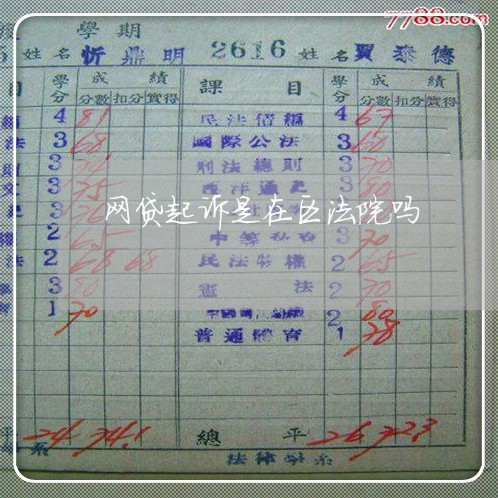 7788.com
學期
5 姓名 忻鼎明 2616 姓名 賈泰德
目 學分 成績 課目 學分 成績
分數 扣分 實得 分數 扣分 實得
4 81 民法債編 4 67
法 3 68 國際公法 3 60
3 刑法總則 3 70
3 75 西洋通史 3 80
3 76
網贷起诉是在区法院吗
2 65 3 70
法 2 68 68 民法物權 2 65
3 80 憲法 2 70
1 70 2 80
普通體育 1 78
平 24 74.1 總平 26 72.3
系 法律學系